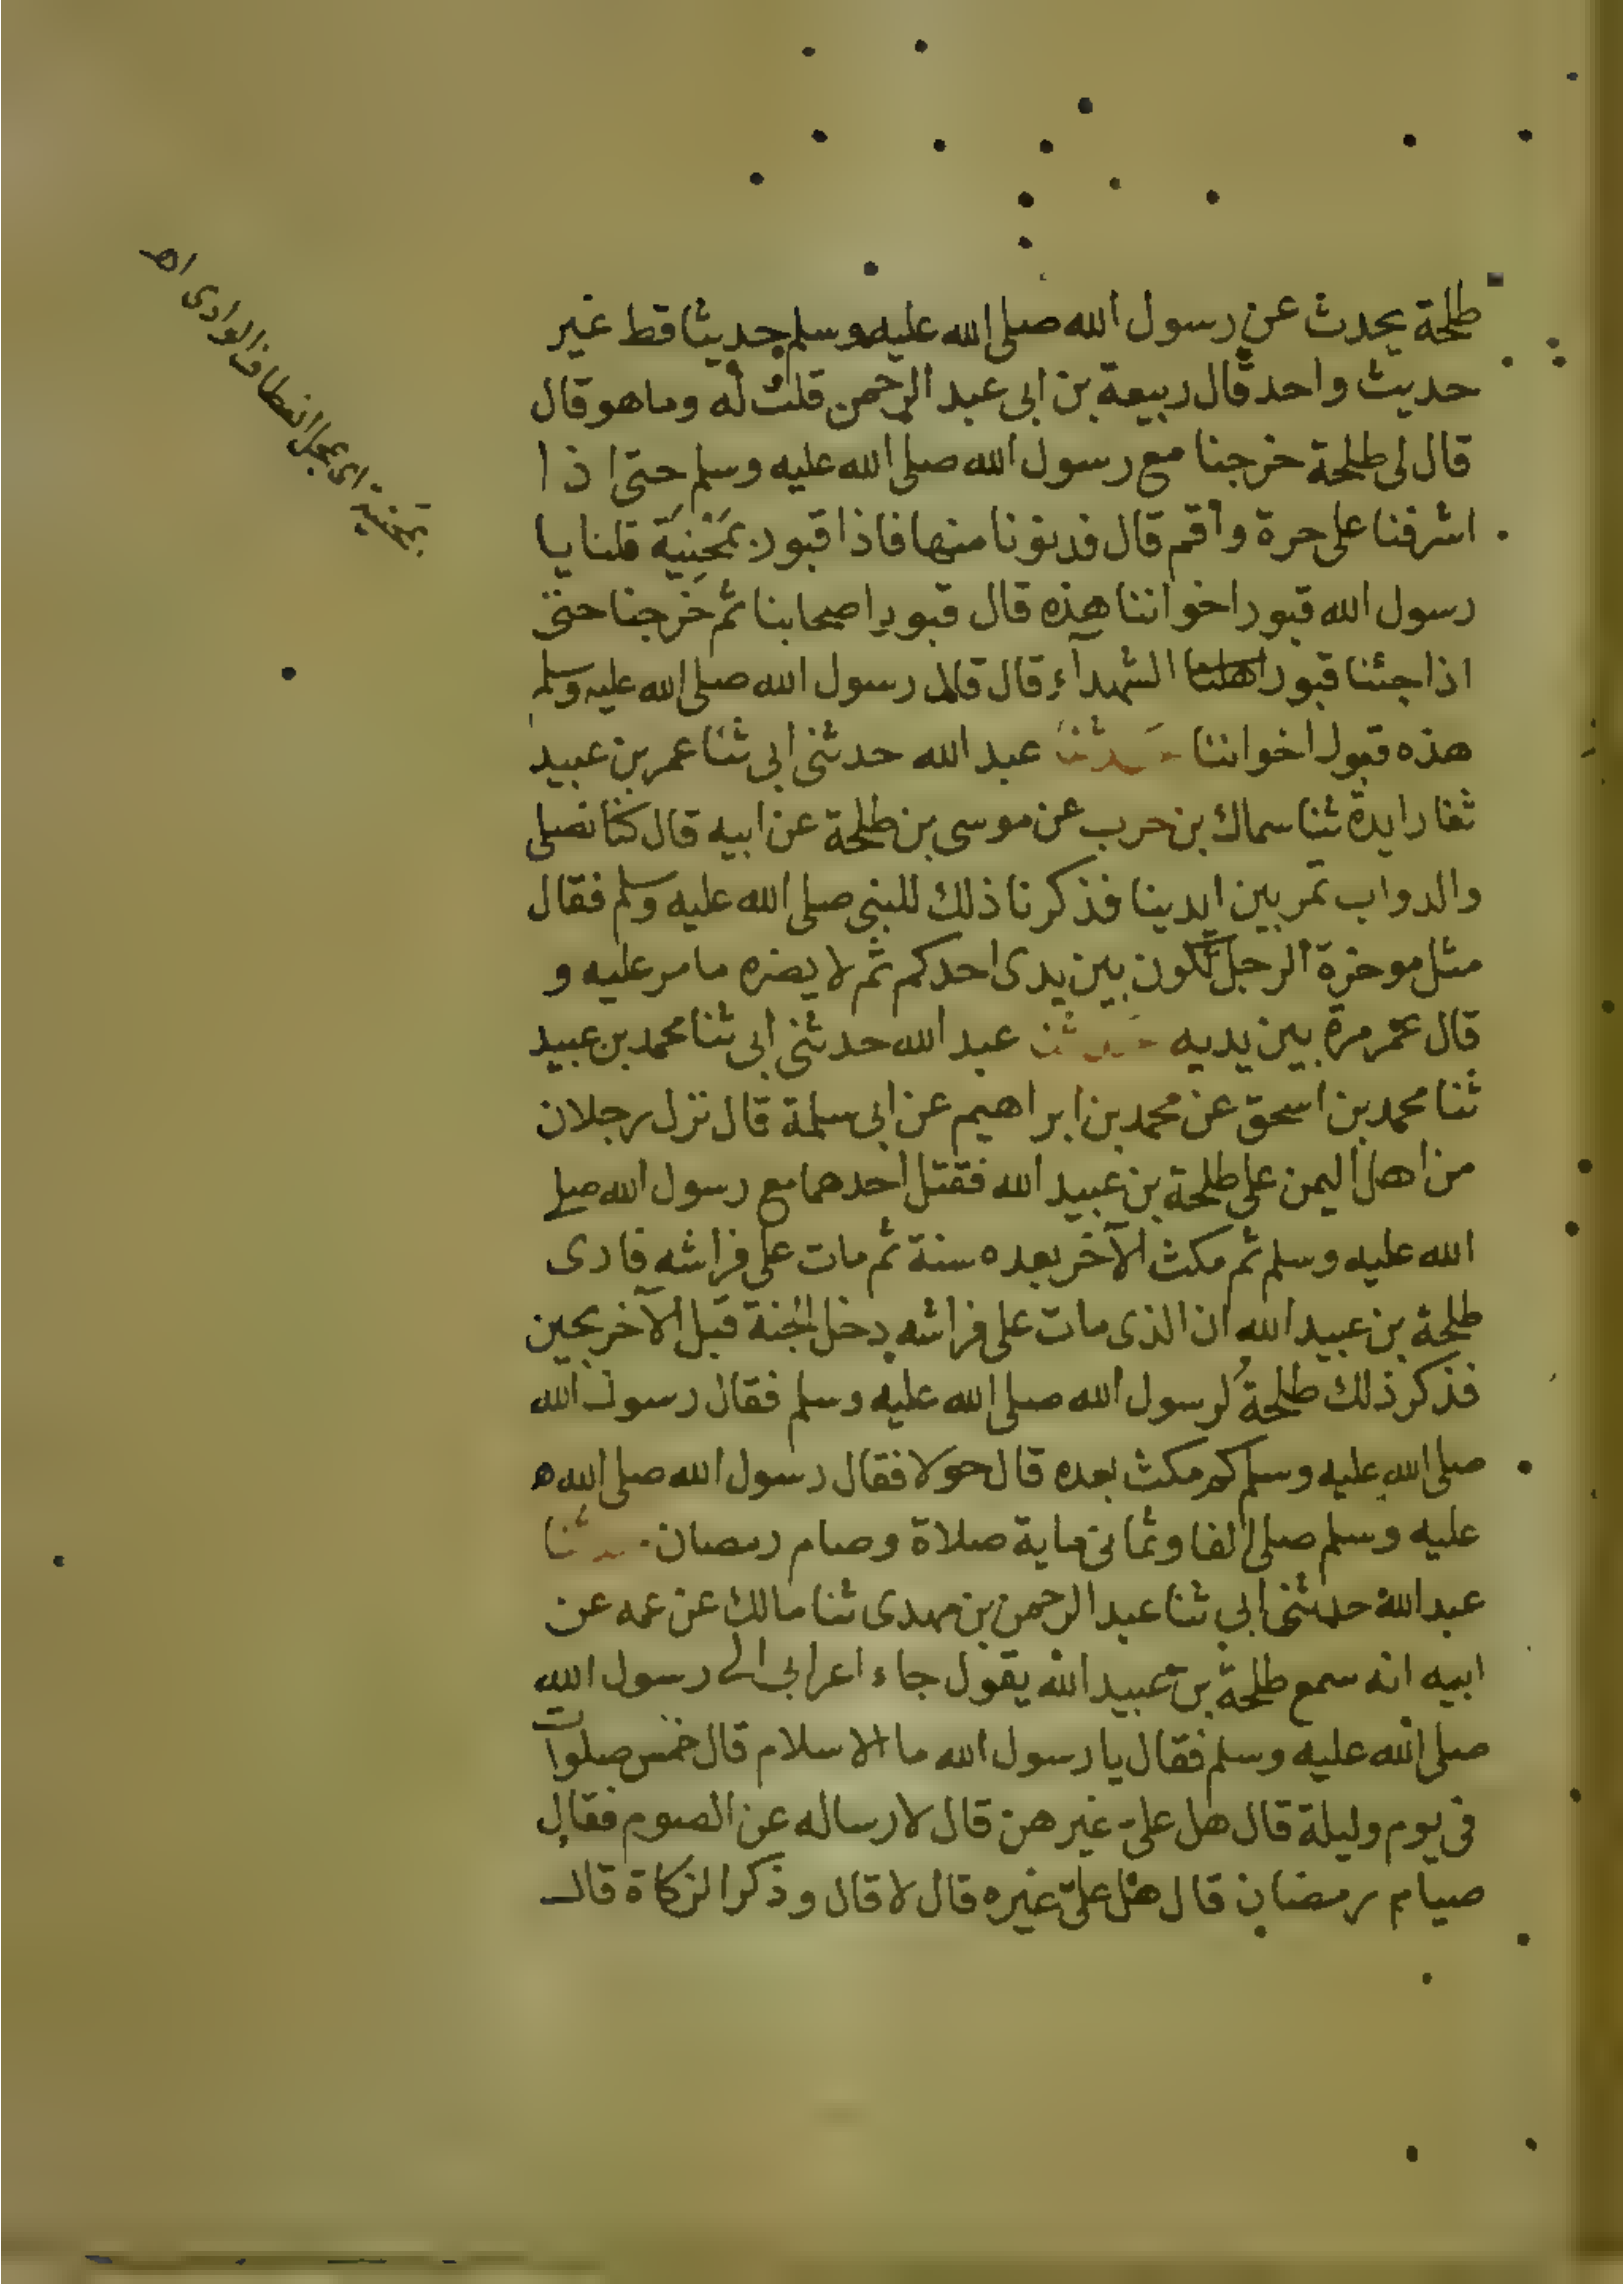 طلحة يحدث عن رسول الله صلى الله عليه وسلم حديثا قط غير
حديث واحد قال ربيعة بن ابى عبد الرحمن قلت له وما هو قال
قال لى طلحة خرجنا مع رسول الله صلى الله عليه وسلم حتى اذا
اشرفنا على حرة واقم قال فدنونا منها فاذا قبور بمَحْنِيَة قلنا يا
رسول الله قبور اخواننا هذه قال قبور اصحابنا ثم خرجنا حتى
اذا جئنا قبور الشهدآء قال قال رسول الله صلى الله عليه وسلم
هذه قبور اخواننا حدثنا عبد الله حدثنى ابى ثنا عمر بن عبيد
ثنا زايدة ثنا سماك بن حرب عن موسى بن طلحة عن ابيه قال كنا نصلى
والدواب تمر بين ايدينا فذكرنا ذلك للنبى صلى الله عليه وسلم فقال
مثل موخرة الرحل تكون بين يدى احدكم ثم لا يضره ما مر عليه و
قال عمر مرة بين يديه حدثنا عبد الله حدثنى ابى ثنا محمد بن عبيد
ثنا محمد بن اسحق عن محمد بن ابراهيم عن ابى سلمة قال نزل رجلان
من اهل اليمن على طلحة بن عبيد الله فقتل احدهما مع رسول الله صلى
الله عليه وسلم ثم مكث الآخر بعده سنة ثم مات على فراشه فارى
طلحة بن عبيد الله ان الذى مات على فراشه دخل الجنة قبل الآخر بحين
فذكر ذلك طلحةُ لرسول الله صلى الله عليه وسلم فقال رسول الله
صلى الله عليه وسلم كم مكث بعده قال حولا فقال رسول الله صلى الله
عليه وسلم صلى الفا وثمانى ماية صلاة وصام رمضان حدثنا
عبد الله حدثنى ابى ثنا عبد الرحمن بن مهدى ثنا مالك عن عمه عن
ابيه انه سمع طلحة بن عبيد الله يقول جاء اعرابى الى رسول الله
صلى الله عليه وسلم فقال يا رسول الله ما الاسلام قال خمس صلوات
فى يوم وليلة قال هل علىّ غيرهن قال لا وساله عن الصوم فقال
صيام رمضان قال هل علىّ غيره قال لا قال وذكر الزكاة قال
بمحنية اى بمحل انعطاف الوادى اه